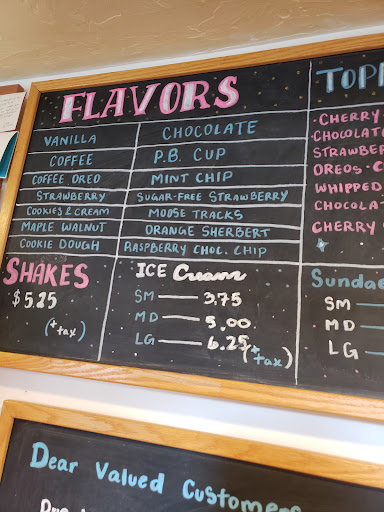 FLAVORS
VANILLA
CHOCOLATE
COFFEE
P.B. CUP
COFFEE OREO
MINT CHIP
STRAWBERRY
SUGAR-FREE STRAWBERRY
COOKIES & CREAM
MOOSE TRACKS
MAPLE WALNUT
ORANGE SHERBERT
COOKIE DOUGH
RASPBERRY CHOC. CHIP
SHAKES
$5.25
(+ tax)
ICE Cream
SM — 3.75
MD — 5.00
LG — 6.25
(+ tax)
TOPP
·CHERRY
·CHOCOLAT
STRAWBER
OREOS · C
WHIPPED
CHOCOLA
CHERRY
Sundae
SM —
MD —
LG —
Dear Valued Customers